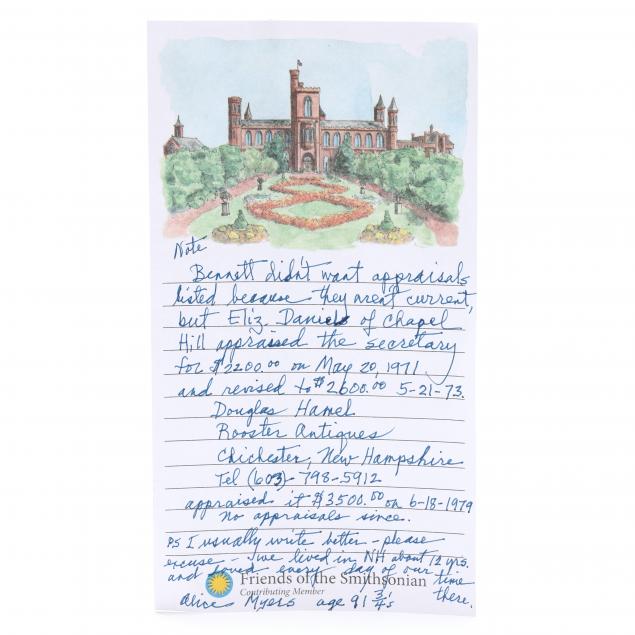 Note
Bennett didn't want appraisals
listed because they arent current,
but Eliz. Daniels of Chapel
Hill appraised the secretary
for $2200.00 on May 20, 1971
and revised to $2600.00 5-21-73.
Douglas Hamel
Rooster Antiques
Chichester, New Hampshire
Tel (603)-798-5912
appraised it $3500.00 on 6-18-1979
No appraisals since.
PS I usually write better - please
excuse - we lived in NH about 12 yrs.
and loved every day of our time
there.
Friends of the Smithsonian
Contributing Member
Alice Myers age 91 3/4's